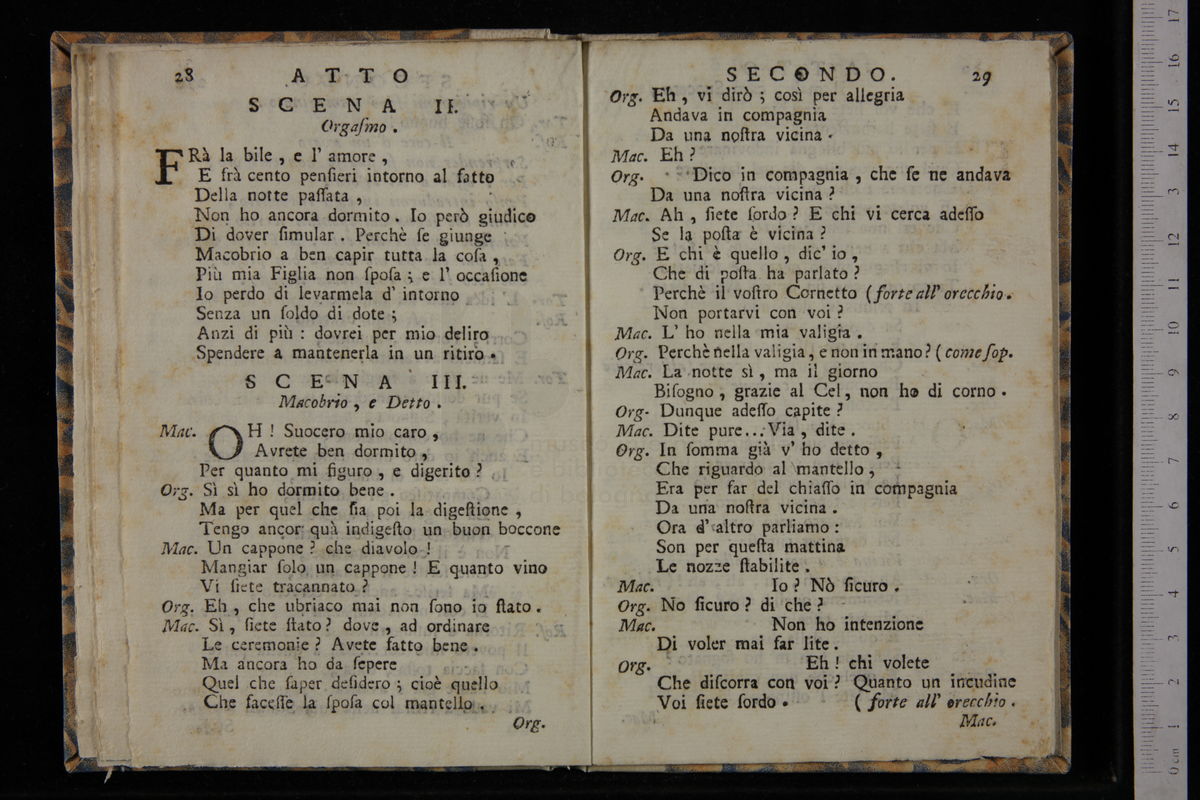 28 ATTO
SCENA II.
Orgaſmo .
FRà la bile , e l' amore ,
E frà cento penſieri intorno al fatto
Della notte paſſata ,
Non ho ancora dormito . Io però giudico
Di dover ſimular . Perchè ſe giunge
Macobrio a ben capir tutta la coſa ,
Più mia Figlia non ſpoſa ; e l' occaſione
Io perdo di levarmela d' intorno
Senza un ſoldo di dote ;
Anzi di più : dovrei per mio deliro
Spendere a mantenerla in un ritiro .
SCENA III.
Macobrio , e Detto .
Mac. OH ! Suocero mio caro ,
Avrete ben dormito ,
Per quanto mi figuro , e digerito ?
Org. Sì sì ho dormito bene .
Ma per quel che ſia poi la digeſtione ,
Tengo ancor quà indigeſto un buon boccone
Mac. Un cappone ? che diavolo !
Mangiar ſolo un cappone ! E quanto vino
Vi ſiete tracannato ?
Org. Eh , che ubriaco mai non ſono io ſtato .
Mac. Sì , ſiete ſtato ? dove , ad ordinare
Le ceremonie ? Avete fatto bene .
Ma ancora ho da ſepere
Quel che ſaper deſidero ; cioè quello
Che faceſſe la ſpoſa col mantello .
Org.
SECONDO. 29
Org. Eh , vi dirò ; così per allegria
Andava in compagnia
Da una noſtra vicina .
Mac. Eh ?
Org. Dico in compagnia , che ſe ne andava
Da una noſtra vicina ?
Mac. Ah , ſiete ſordo ? E chi vi cerca adeſſo
Se la poſta è vicina ?
Org. E chi è quello , dic' io ,
Che di poſta ha parlato ?
Perchè il voſtro Cornetto ( forte all' orecchio .
Non portarvi con voi ?
Mac. L' ho nella mia valigia .
Org. Perchè nella valigia , e non in mano ? ( come ſop.
Mac. La notte sì , ma il giorno
Biſogno , grazie al Cel , non ho di corno .
Org. Dunque adeſſo capite ?
Mac. Dite pure... Via , dite .
Org. In ſomma già v' ho detto ,
Che riguardo al mantello ,
Era per far del chiaſſo in compagnia
Da una noſtra vicina .
Ora d' altro parliamo :
Son per queſta mattina
Le nozze ſtabilite .
Mac. Io ? Nò ſicuro .
Org. No ſicuro ? di che ?
Mac. Non ho intenzione
Di voler mai far lite .
Org. Eh ! chi volete
Che diſcorra con voi ? Quanto un incudine
Voi ſiete ſordo . ( forte all' orecchio .
Mac.